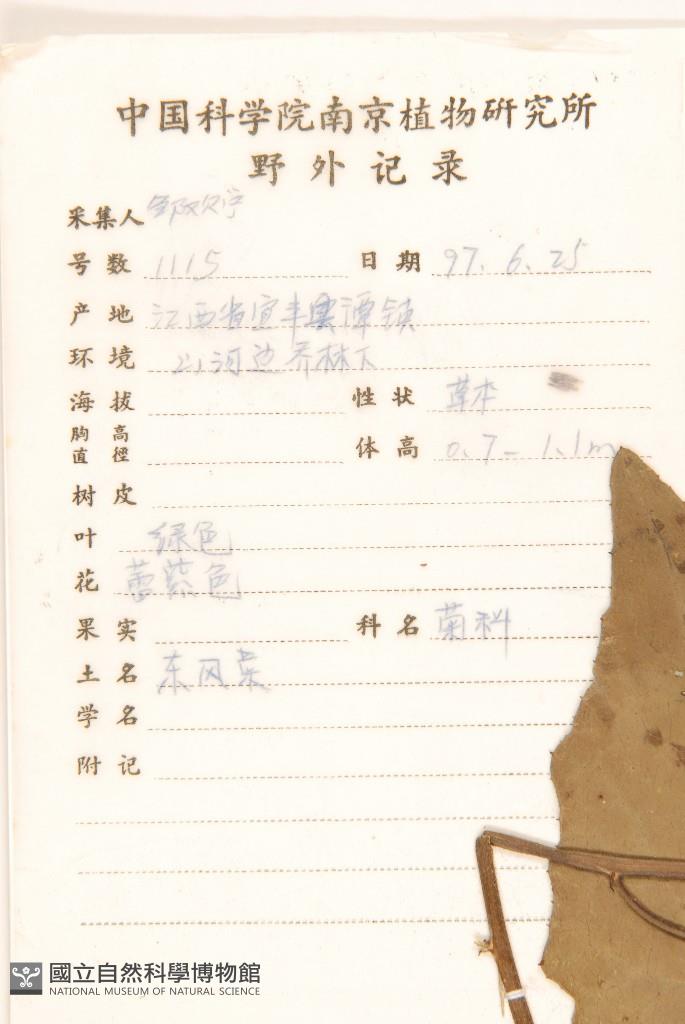 中国科学院南京植物研究所
野外记录
采集人
号数 1115 日期 97.6.25
产地 江西省宜丰潭镇
环境 山河边乔林下
海拔 性状 草本
胸高直徑 体高 0.7-1.1m
树皮
叶 绿色
花 紫色
果实 科名 菊科
土名 东风菜
学名
附记
國立自然科學博物館
NATIONAL MUSEUM OF NATURAL SCIENCE